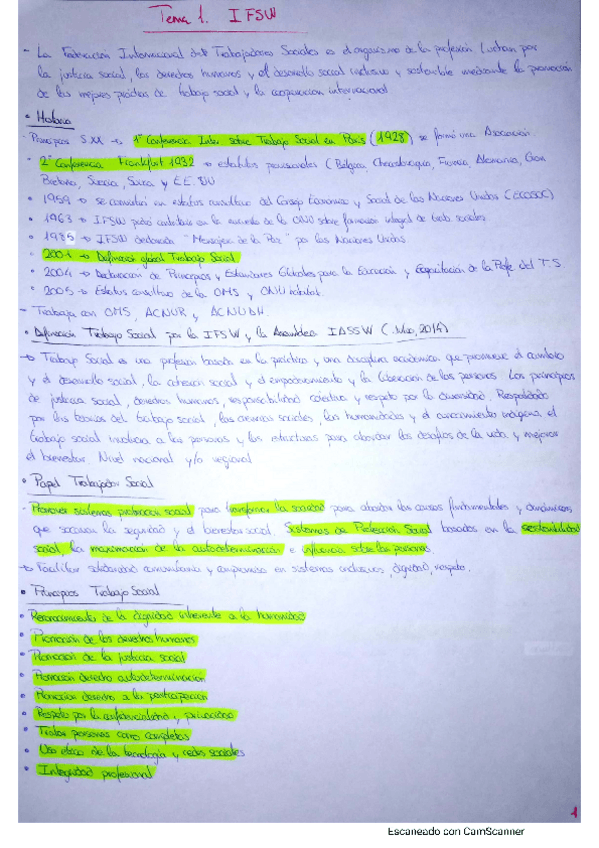 Tema 1. IFSW
- La Federación Internacional de Trabajadores Sociales es el organismo de la profesión Luchan por
la justicia social, los derechos humanos y el desarrollo social inclusivo y sostenible mediante la promoción
de las mejores prácticas de trabajo social y la cooperación internacional
• Historia
- Principios S.XX → 1ª Conferencia Inter. sobre Trabajo Social en París (1928) se formó una Asociación.
• 2ª Conferencia Frankfurt 1932 → estatutos provisionales (Bélgica, Checoslovaquia, Francia, Alemania, Gran
Bretaña, Suecia, Suiza y EE.UU
• 1959 → se convirtió en estatus consultivo del Consejo Económico y Social de las Naciones Unidas (ECOSOC)
• 1963 → IFSW pidió contribuir en la encuesta de la ONU sobre formación integral de trab. sociales.
• 1985 → IFSW declarada "Mensajera de la Paz" por las Naciones Unidas
• 2001 → Definición global Trabajo Social
• 2004 → Declaración de Principios y Estándares Globales para la Educación y Capacitación de la Profe. del T.S
• 2005 → Estatus consultivo de la OMS y ONU habitat.
- Trabaja con OMS, ACNUR y ACNUDH.
• Definición Trabajo Social por la IFSW y la Asamblea IASSW (2014)
→ Trabajo Social es una profesión basada en la práctica y una disciplina académica que promueve el cambio
y el desarrollo social, la cohesión social y el empoderamiento y la liberación de las personas. Los principios
de justicia social, derechos humanos, responsabilidad colectiva y respeto por la diversidad. Respaldado
por las teorías del trabajo social, las ciencias sociales, las humanidades y el conocimiento indígena el
trabajo social involucra a las personas y las estructuras para abordar los desafíos de la vida y mejorar
el bienestar. Nivel nacional y/o regional
• Papel Trabajador Social
- Promover sistemas protección social para transformar la sociedad para abordar las causas fundamentales y dinámicas
que socavan la seguridad y el bienestar social. Sistemas de Protección Social basados en la sostenibilidad
social, la maximación de la autodeterminación e influencia sobre las personas.
→ Facilitar solidaridad comunitaria y compromiso en sistemas inclusivos, dignidad, respeto.
• Principios Trabajo Social
• Reconocimiento de la dignidad inherente a la humanidad
• Promoción de los derechos humanos
• Promoción de la justicia social
• Promoción derecho autodeterminación
• Promoción derecho a la participación
• Respeto por la confidencialidad y privacidad
• Tratar personas como completas
• Uso ético de la tecnología y redes sociales
• Integridad profesional
1
Escaneado con CamScanner